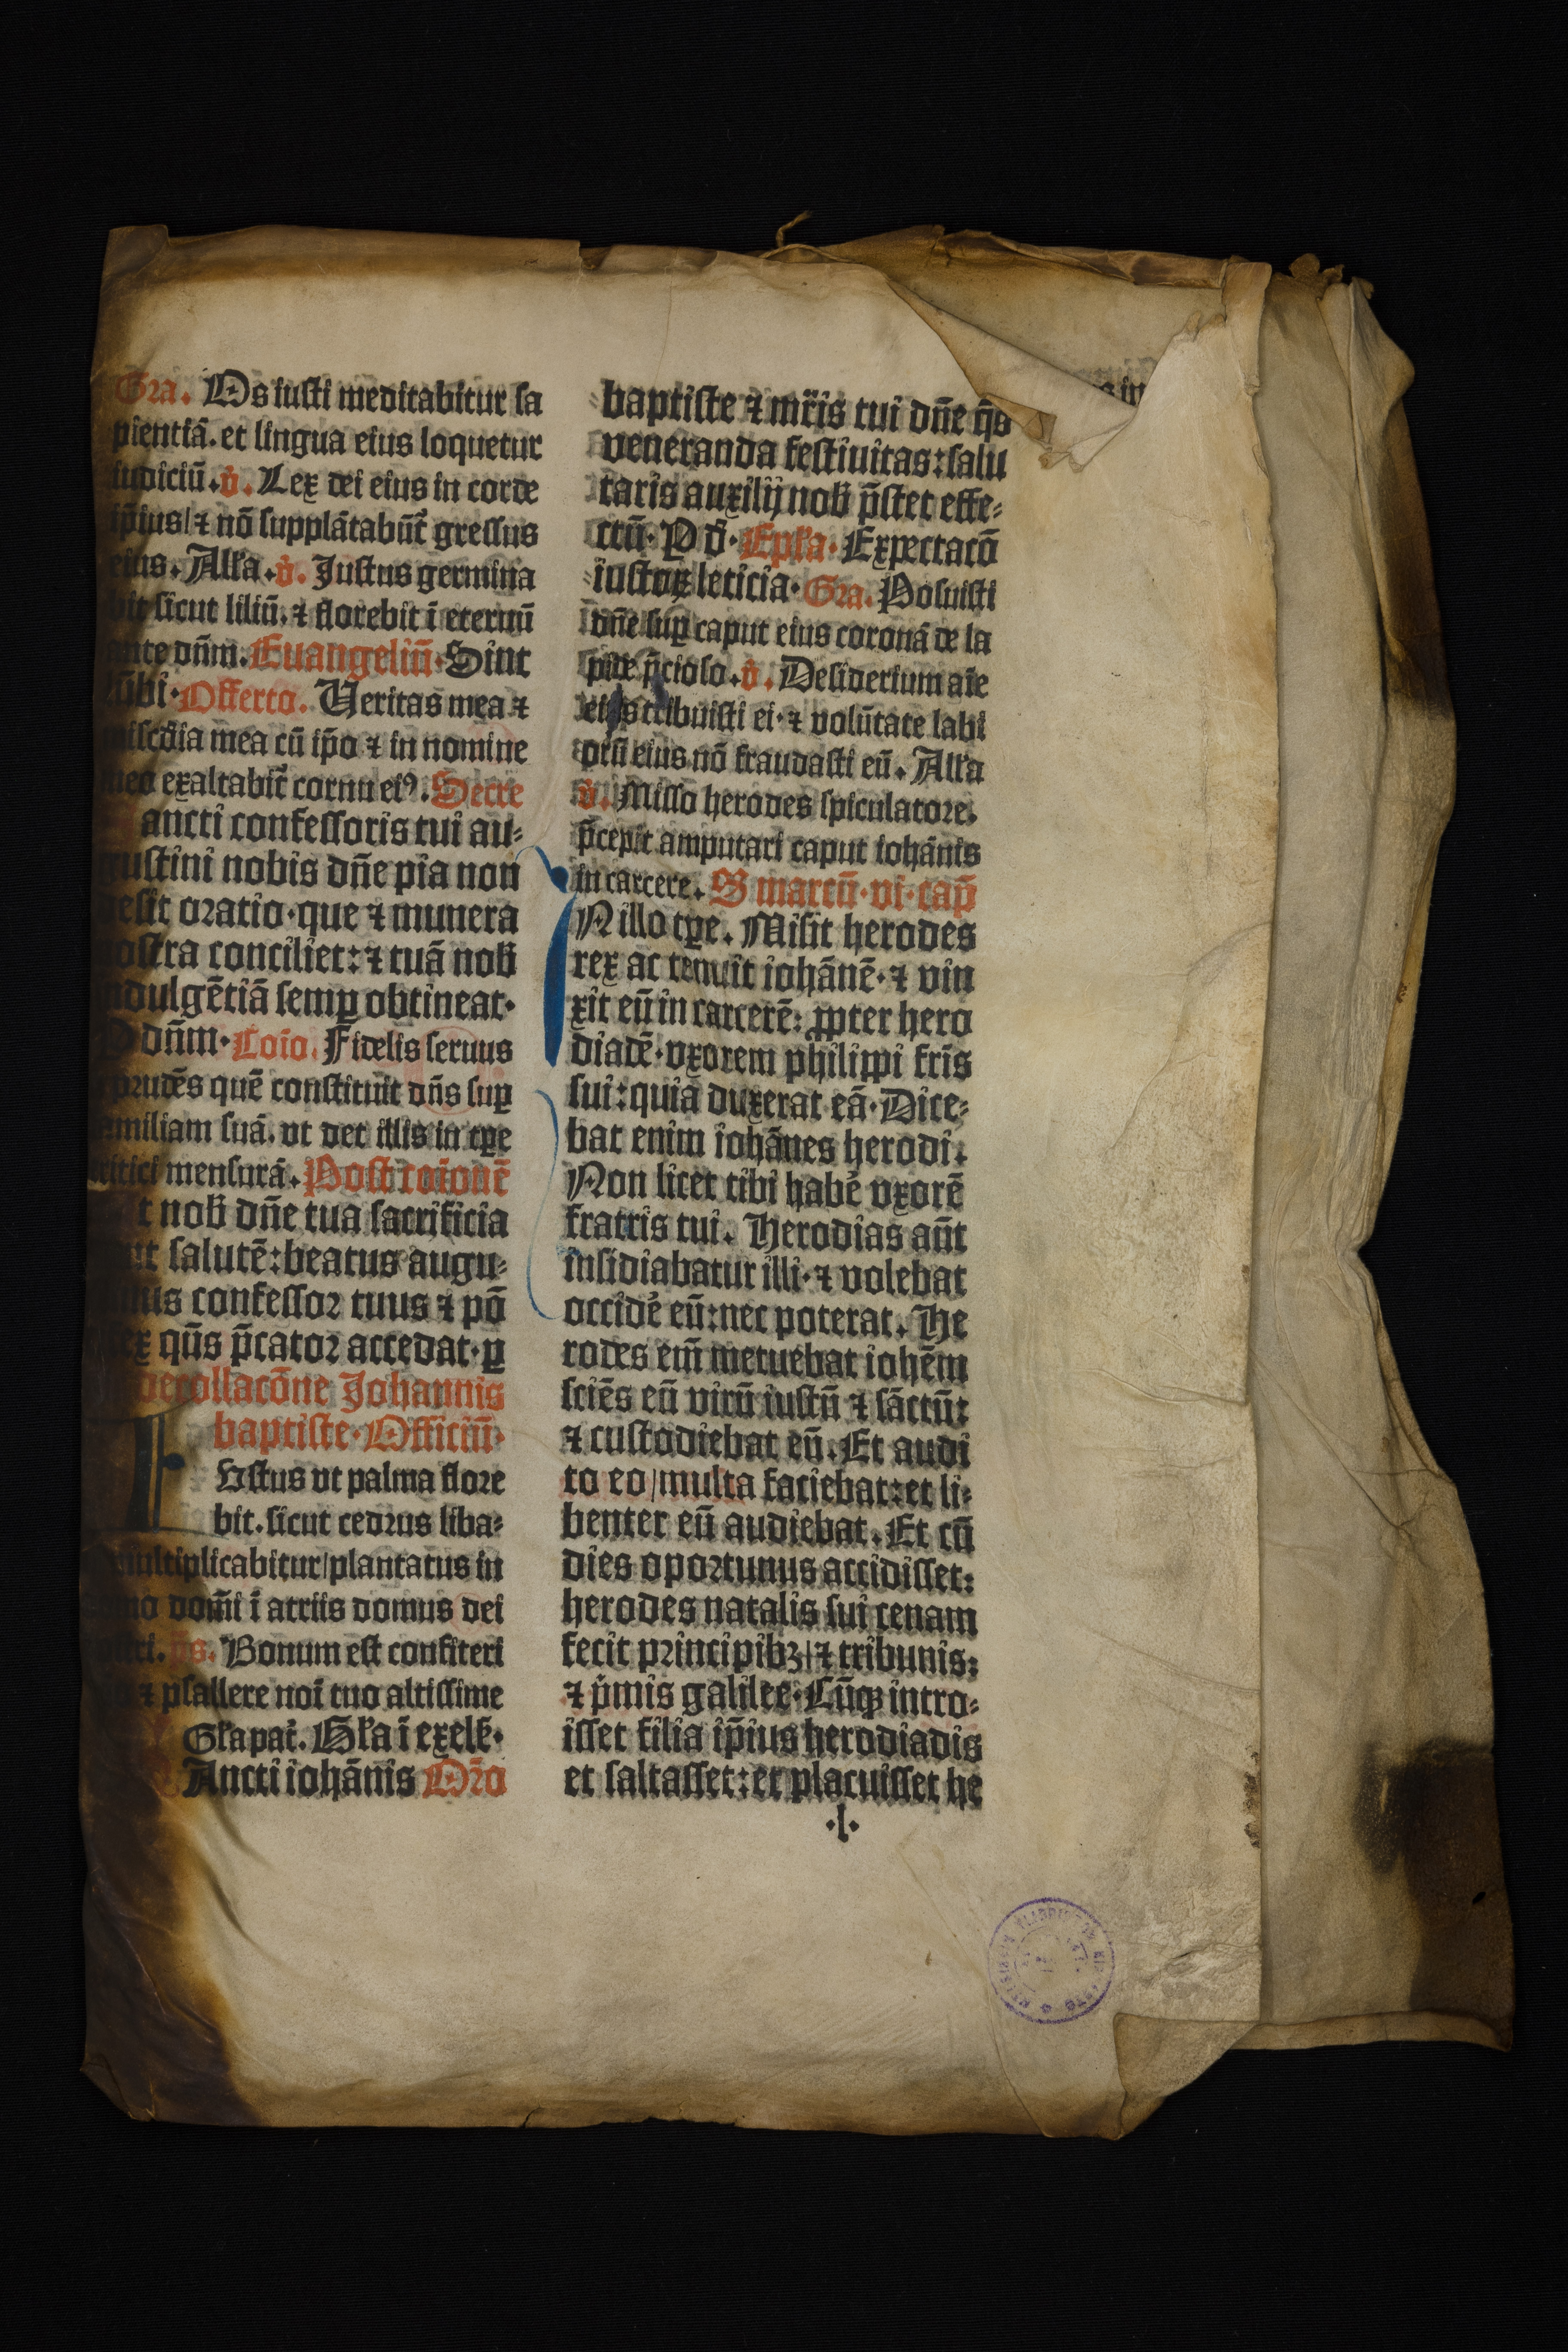 Gra. Os iusti meditabitur sa
pientiā. et lingua eius loquetur
iudiciū. v̇. Lex dei eius in corde
ip̄ius / ⁊ nō supplātabūt᷑ gressus
eius. Alľa. v̇. Justus germina
bit sicut liliū. ⁊ florebit ī eternū
ante dn̄m. Euangeliū. Sint
lūbi. Offerto. Ueritas mea ⁊
mīsc̄dia mea cū ip̄o ⁊ in nomine
meo exaltabit᷑ cornu ei⁹. Secre
ancti confessoris tui au⸗
gustini nobis dn̄e pia non
desit oratio. que ⁊ munera
nostra conciliet: ⁊ tuā nob̄
indulgētiā semꝑ obtineat.
P dn̄m. Cōio. Fidelis seruus
⁊ prudēs quē constituit dn̄s suꝑ
familiam suā. vt det illis in tꝑe
tritici mensurā. Post cōionē
t nob̄ dn̄e tua sacrificia
salutē: beatus augu⸗
confessor tuus ⁊ pō
qs̄ p̄cator accedat. ꝑ
decollacōne Johannis
baptiste. Officiū.
IUstus vt palma flore
bit. sicut cedrus liba⸗
multiplicabitur / plantatus in
domo domī ī atriis domus dei
nri. p̄s. Bonum est confiteri
⁊ psallere noī tuo altissime
Gľa pat᷑. Gľa ī excels̄.
Ancti iohānis Oīo
baptiste ⁊ mr̄is tui dn̄e qs̄
veneranda festiuitas: salu
taris auxilij nob̄ p̄stet effe⸗
ctū. P d̄. Epľa. Expectacō
iustoꝝ leticia. Gra. Posuisti
dn̄e suꝑ caput eius coronā de la
pide p̄cioso. v̇. Desiderium aīe
eius tribuisti ei. ⁊ volūtate labi
orū eius nō fraudasti eū. Alľa
v̇. Misso herodes spiculatore.
p̄cepit amputari caput iohānis
in carcere. S marcū. vi. cap̄
IN illo tꝑe. Misit herodes
rex ac tenuit iohānē. ⁊ vin
xit eū in carcerē: ꝓpter hero
diadē. vxorem philippi fr̄is
sui: quia duxerat eā. Dice⸗
bat enim iohānes herodi.
Non licet tibi habē vxorē
fratris tui. Herodias aūt
insidiabatur illi. ⁊ volebat
occidē eū: nec poterat. He
rodes em̄ metuebat iohēm
sciēs eū virū iustū ⁊ sāctū:
⁊ custodiebat eū. Et audi
to eo / multa faciebat: et li⸗
benter eū audiebat. Et cū
dies oportunus accidisset:
herodes natalis sui cenam
fecit principibꝫ / ⁊ tribunis:
⁊ p̄mis galilee. Cūqꝫ intro⸗
isset filia ip̄ius herodiadis
et saltasset: et placuisset he
.l.